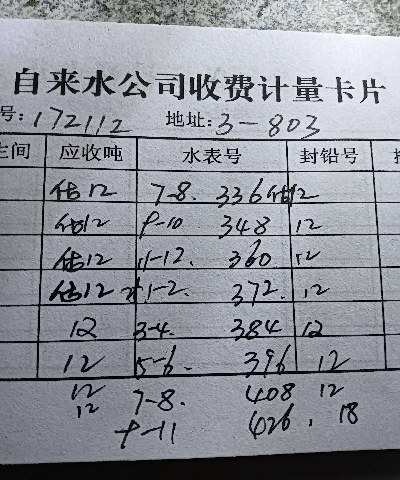 自来水公司收费计量卡片
号: 172112 地址: 3-803
主间 应收吨 水表号 封铅号
估12 7-8. 336 估12
估12 9-10 348 12
估12 11-12. 360 12
估12 1-2. 372. 12
12 3-4. 384 12
12 5-6. 396 12
12 7-8. 408 12
12 9-11 426. 18